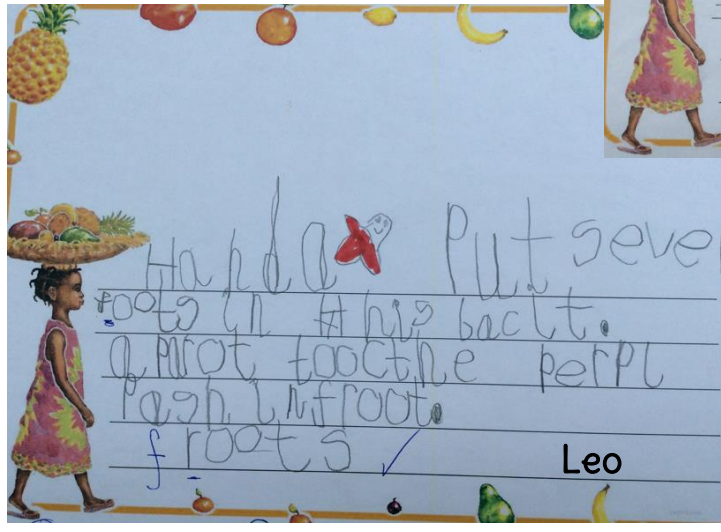 Handa Put seve
roots in this baclt.
a parot tooc the perpl
pash infroot.
f roots
Leo